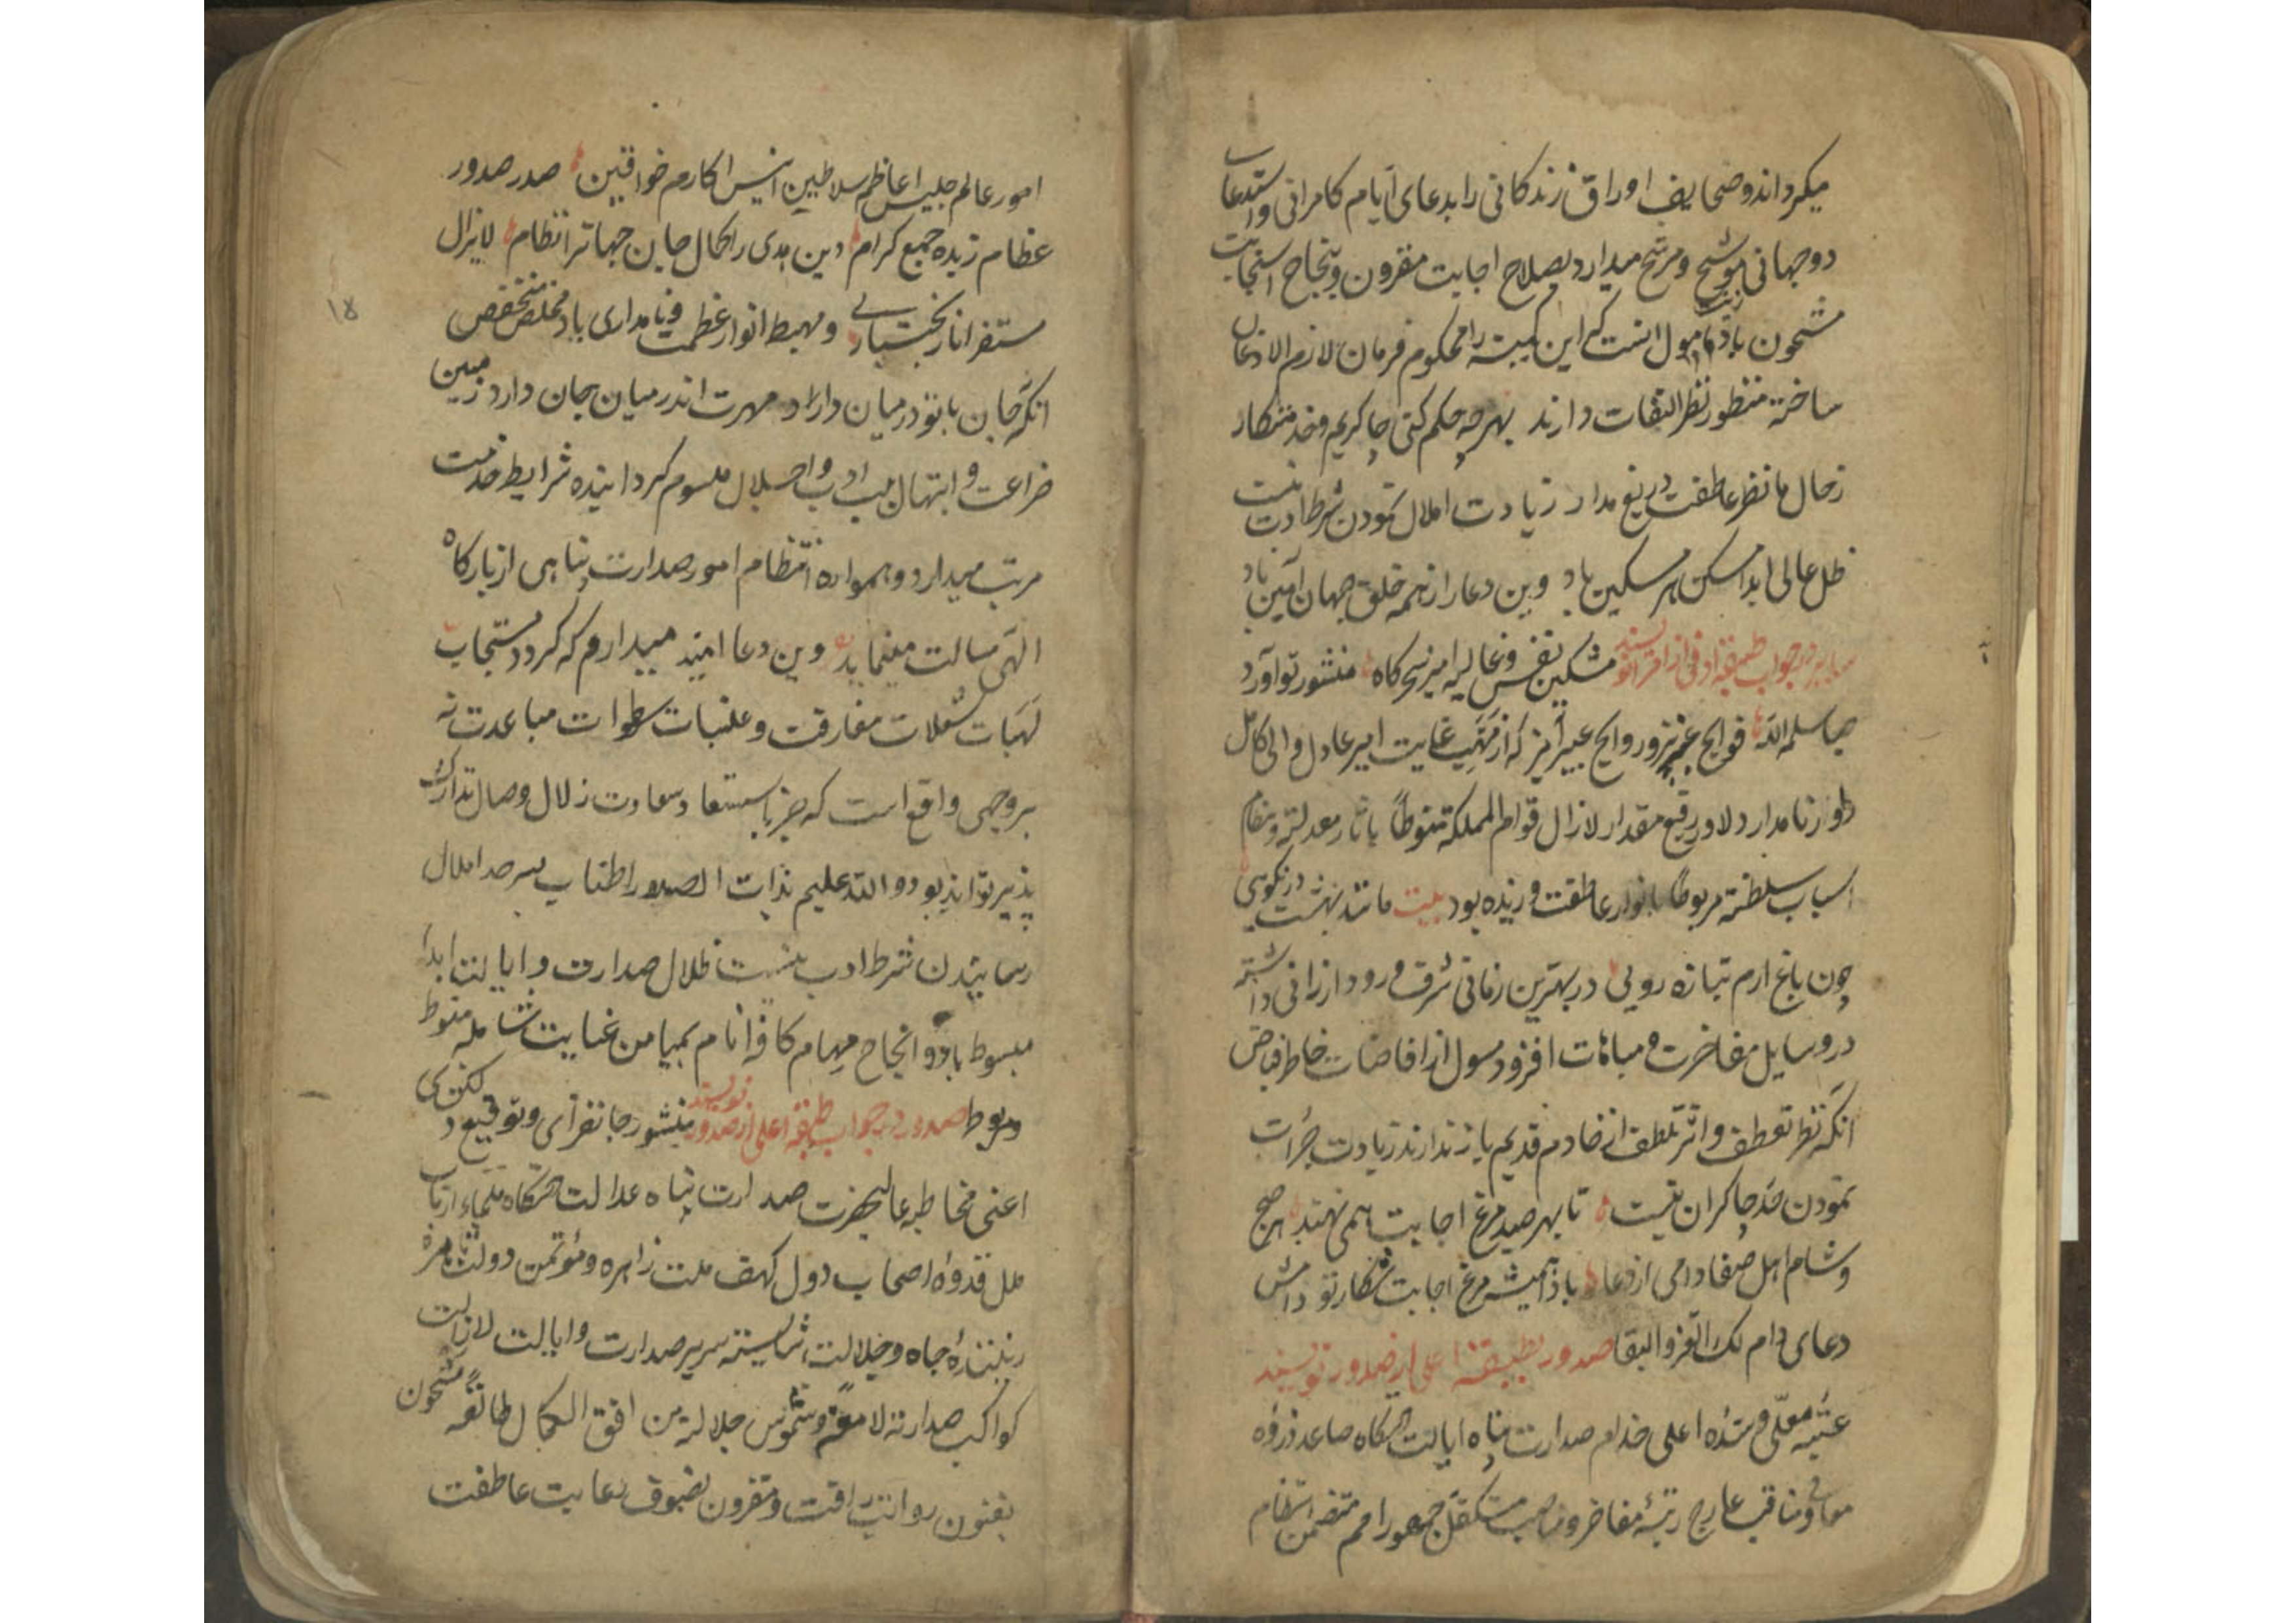 میکرداند و صحایف اوراق زندکانی را بدعای ایام کامرانی و استدعاء
دوجهانی موشح و مرشح میدارد بصلاح اجابت مقرون و بنجاح استجابت
مشحون باد مامول انست که این کمینه را محکوم فرمان لازم الاذعان
ساخته منظور نظر التفات دارند بهر چه حکم کنی چاکریم و خدمتکار
زحال ما نظر عاطفت دریغ مدار زیادت املال نمودن شرط ادب نیست
ظل عالی ابدا مسکن هر مسکین باد وین دعا را زهمه خلق جهان آمین باد
در جواب طبقه ادنی از امرا نویسند مشکین نفس و غالیه امیز سحرکاه منشور تو آورد
صبا سلمه الله فوایح عنبربیز و روایح عبیر آمیز که از مهب عنایت امیر عادل و والی کامل
نامدار دلاور رفیع مقدار لازال قوام المملکة منوطاً باثار معدلته و نظام
اسباب سلطنته مربوطا بانوار عاطفته وزیده بود بیت مانند بهشت در نکویی
چون باغ ارم بتازه رویی در بهترین زمانی شرف ورود ارزانی داشته
در وسایل مفاخرت و مباهات افزود مسول از افاضات خاطر فیاض
آنکه نظر تعطف و اثر تلطف از خادم قدیم باز ندارند زیادت جرأت
نمودن حد چاکران نیست تا بهر صید مرغ اجابت همی نهند هر صبح
و شام اهل صفا دامی از دعا باد همیشه مرغ اجابت شکار تو دامش
دعای دام لک العز و البقا صدور بطبقه اعلی از صدور نویسند
عتبه معلی و سده اعلی خدام صدارت پناه ایالت دستکاه صاعد ذروه
معالی و مناقب عارج رتبه مفاخر و مناصب متکفل جمهور امم متضمن انتظام
امور عالم جلیس اعاظم سلاطین انیس اکارم خواقین صدر صدور
عظام زبده جمع کرام دین هدی را کمال جان جهانرا نظام لایزال
مستقر اثار بختیاری و مهبط انوار عظمت و نامداری باد مخلص متخصص
انکه جان با تو در میان دارد مهرت اندر میان جان دارد زمین
ضراعت و ابتهال بلب ادب و اجلال ملسوم کردانیده شرایط خدمت
مرتب میدارد و همواره انتظام امور صدارت پناهی از بارکاه
الهی مسالت مینماید وین دعا امید میدارم که کردد مستجاب
لهبات شعلات مفارقت و غلبات سطوات مباعدت نه
بروجهی واقع است که جز باستسعاد سعادت زلال وصال تدارک
پذیر تواند بود والله علیم بذات الصدور اطناب بسر حد املال
رسانیدن شرط ادب نیست ظلال صدارت و ایالت ابداً
مبسوط باد و انجاح مهام کافه انام بمیامن عنایت شامله منوط
و مربوط صدور در جواب طبقه اعلی از صدور نویسند منشور جانفزای و توقیع
اعنی مخاطبه عالیحضرت صدارت پناه عدالت دستکاه ملجاء ارباب
ملل قدوه اصحاب دول کهف ملت زاهره و مؤتمن دولت قاهره
زیبنده جاه و جلالت شایسته سریر صدارت و ایالت لازالت
کواکب صدارته لامعة و شموس جلالته من افق الکمال طالعة مشحون
بفنون روایت رافت و مقرون بضروب رعایت عاطفت
۱۸